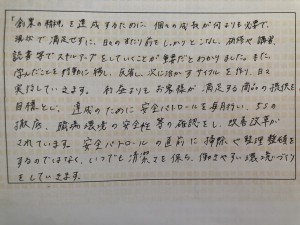 「企業の極秘」を達成するために、個々の成長が何よりも必要で、
現状で満足せずに、日々のすたり前をしっかりとこなし、研修や講習、
読書等でスキルアップをしていくことが重要だとわかりました。また、
学んだことを行動に移し、反省し、次に活かすサイクルを作り、日々
実行していきます。 社会よりもお客様が満足する商品の提供を
目標とし、達成のために安全パトロールを毎月行い、5Sの
徹底、職場環境の安全性等の確認をし、改善改革が
されています。安全パトロールの直前に掃除や整理整頓を
するのではなく、いつでも清潔さを保ち、働きやすい環境づくり
をしていきます。